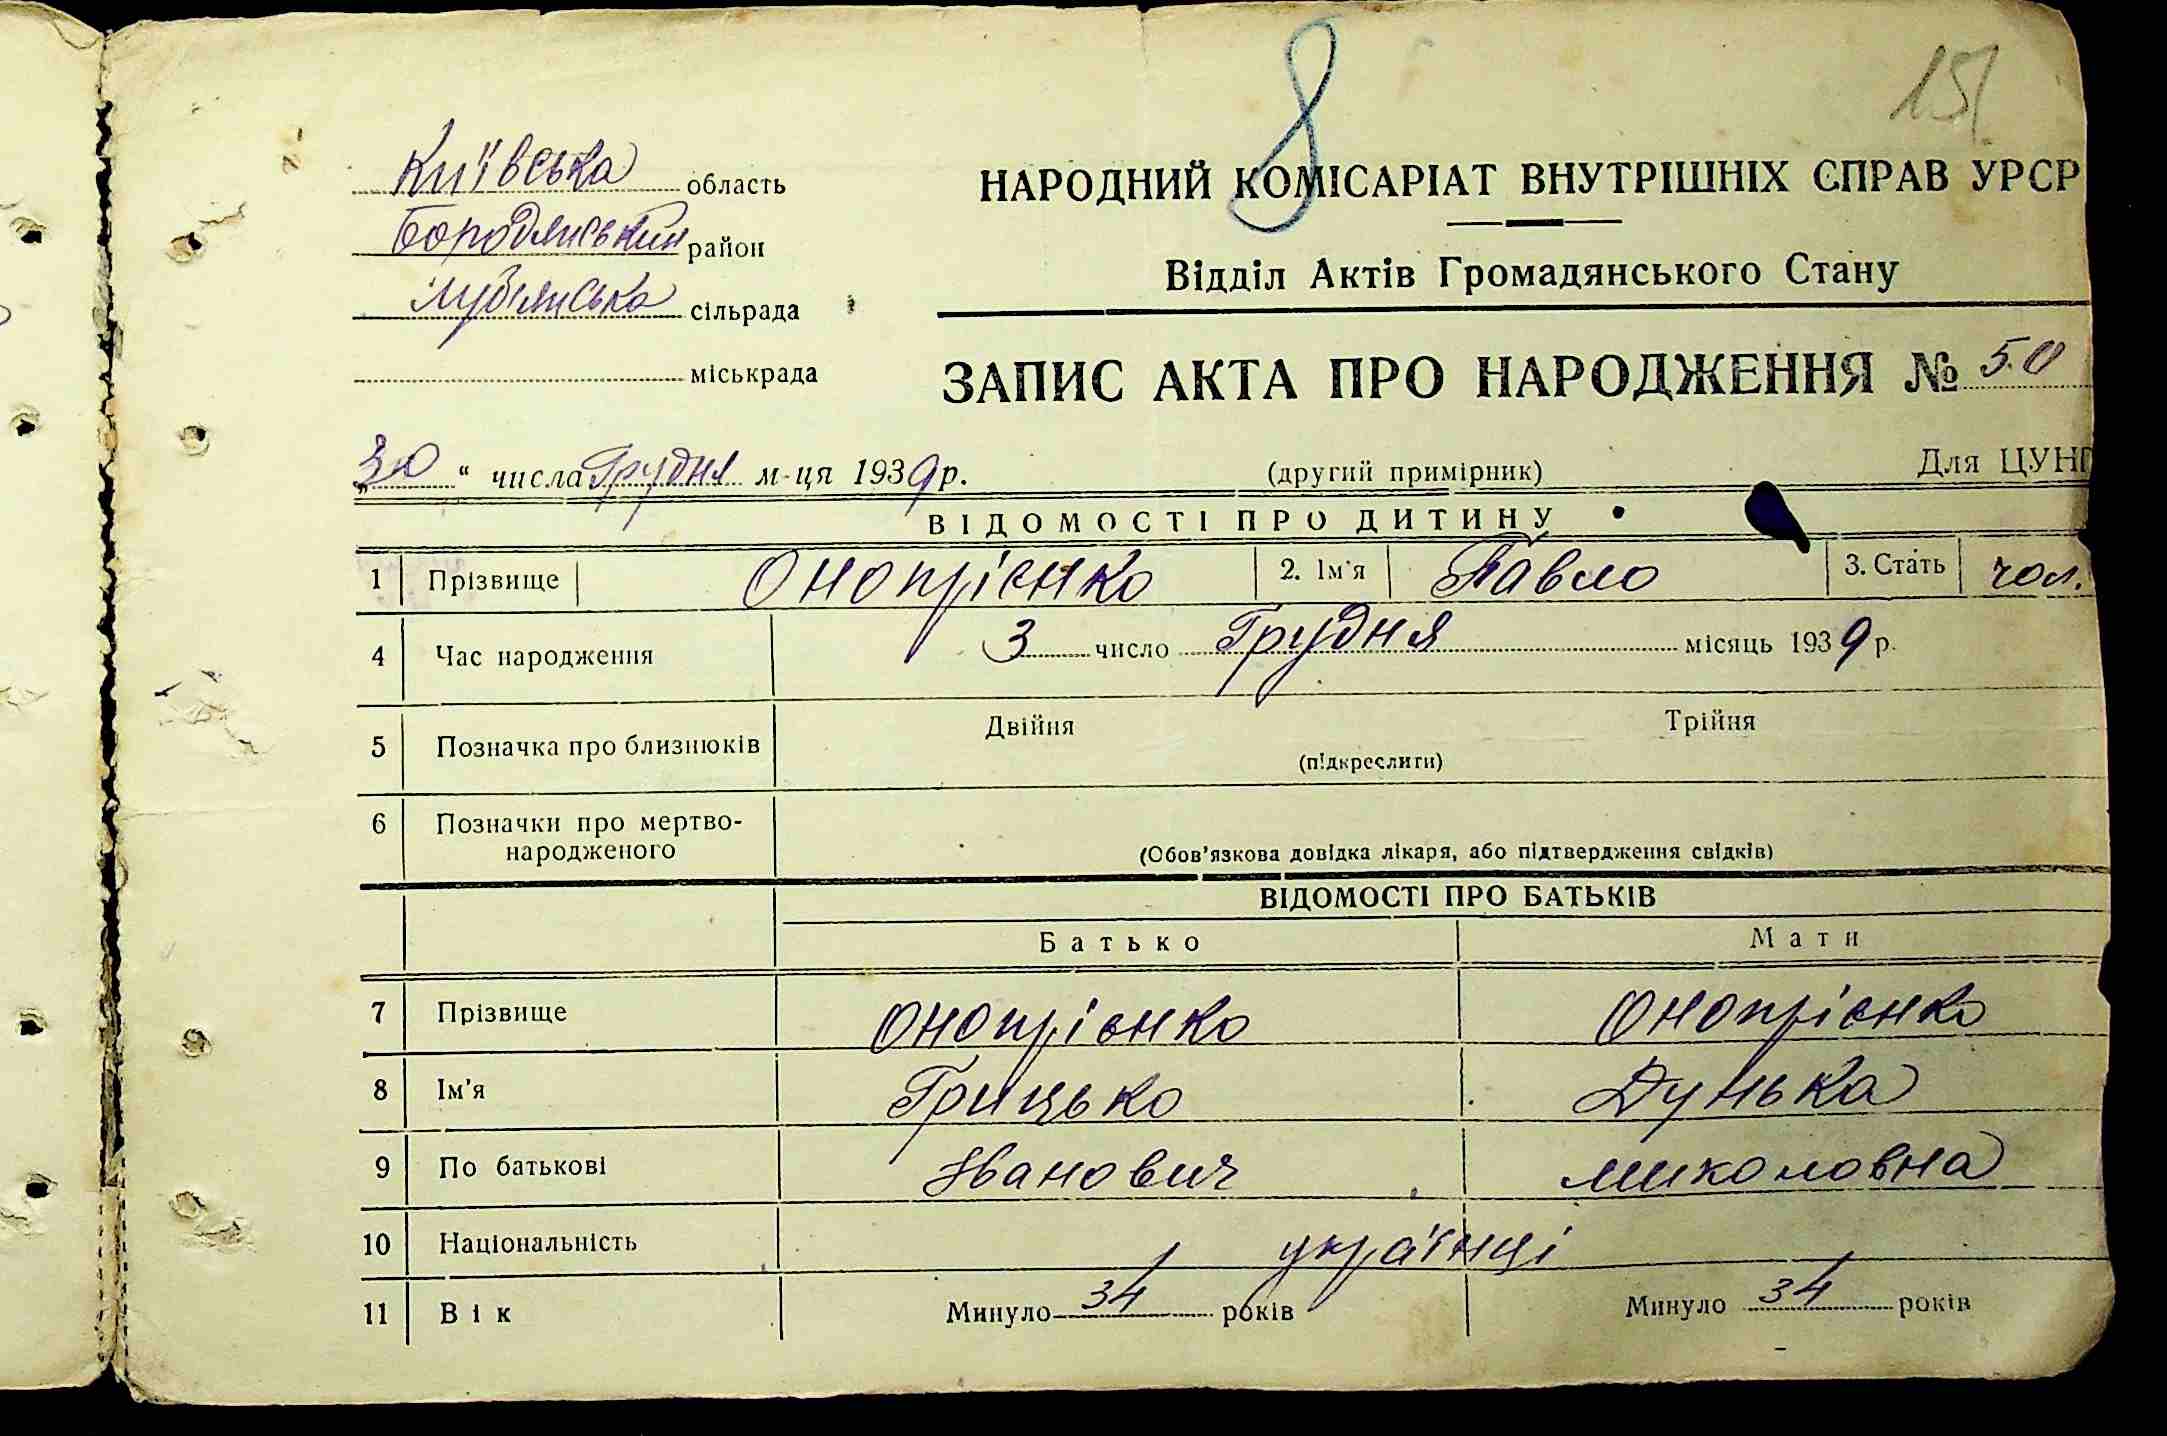 8
151
Київська область
Бородянський район
Лубянська сільрада
міськрада
НАРОДНИЙ КОМІСАРІАТ ВНУТРІШНІХ СПРАВ УРСР
Відділ Актів Громадянського Стану
ЗАПИС АКТА ПРО НАРОДЖЕННЯ № 50
„30“ числа Грудня м-ця 1939 р. (другий примірник) Для ЦУНГ
ВІДОМОСТІ ПРО ДИТИНУ
1 Прізвище Онопрієнко 2. Ім'я Павло 3. Стать чол.
4 Час народження 3 число Грудня місяць 1939 р.
5 Позначка про близнюків Двійня Трійня
(підкреслити)
6 Позначки про мертво-
народженого (Обов'язкова довідка лікаря, або підтвердження свідків)
ВІДОМОСТІ ПРО БАТЬКІВ
Батько Мати
7 Прізвище Онопрієнко Онопрієнко
8 Ім'я Грицько Дунька
9 По батькові Іванович Миколовна
10 Національність українці
11 Вік Минуло 34 років Минуло 34 років